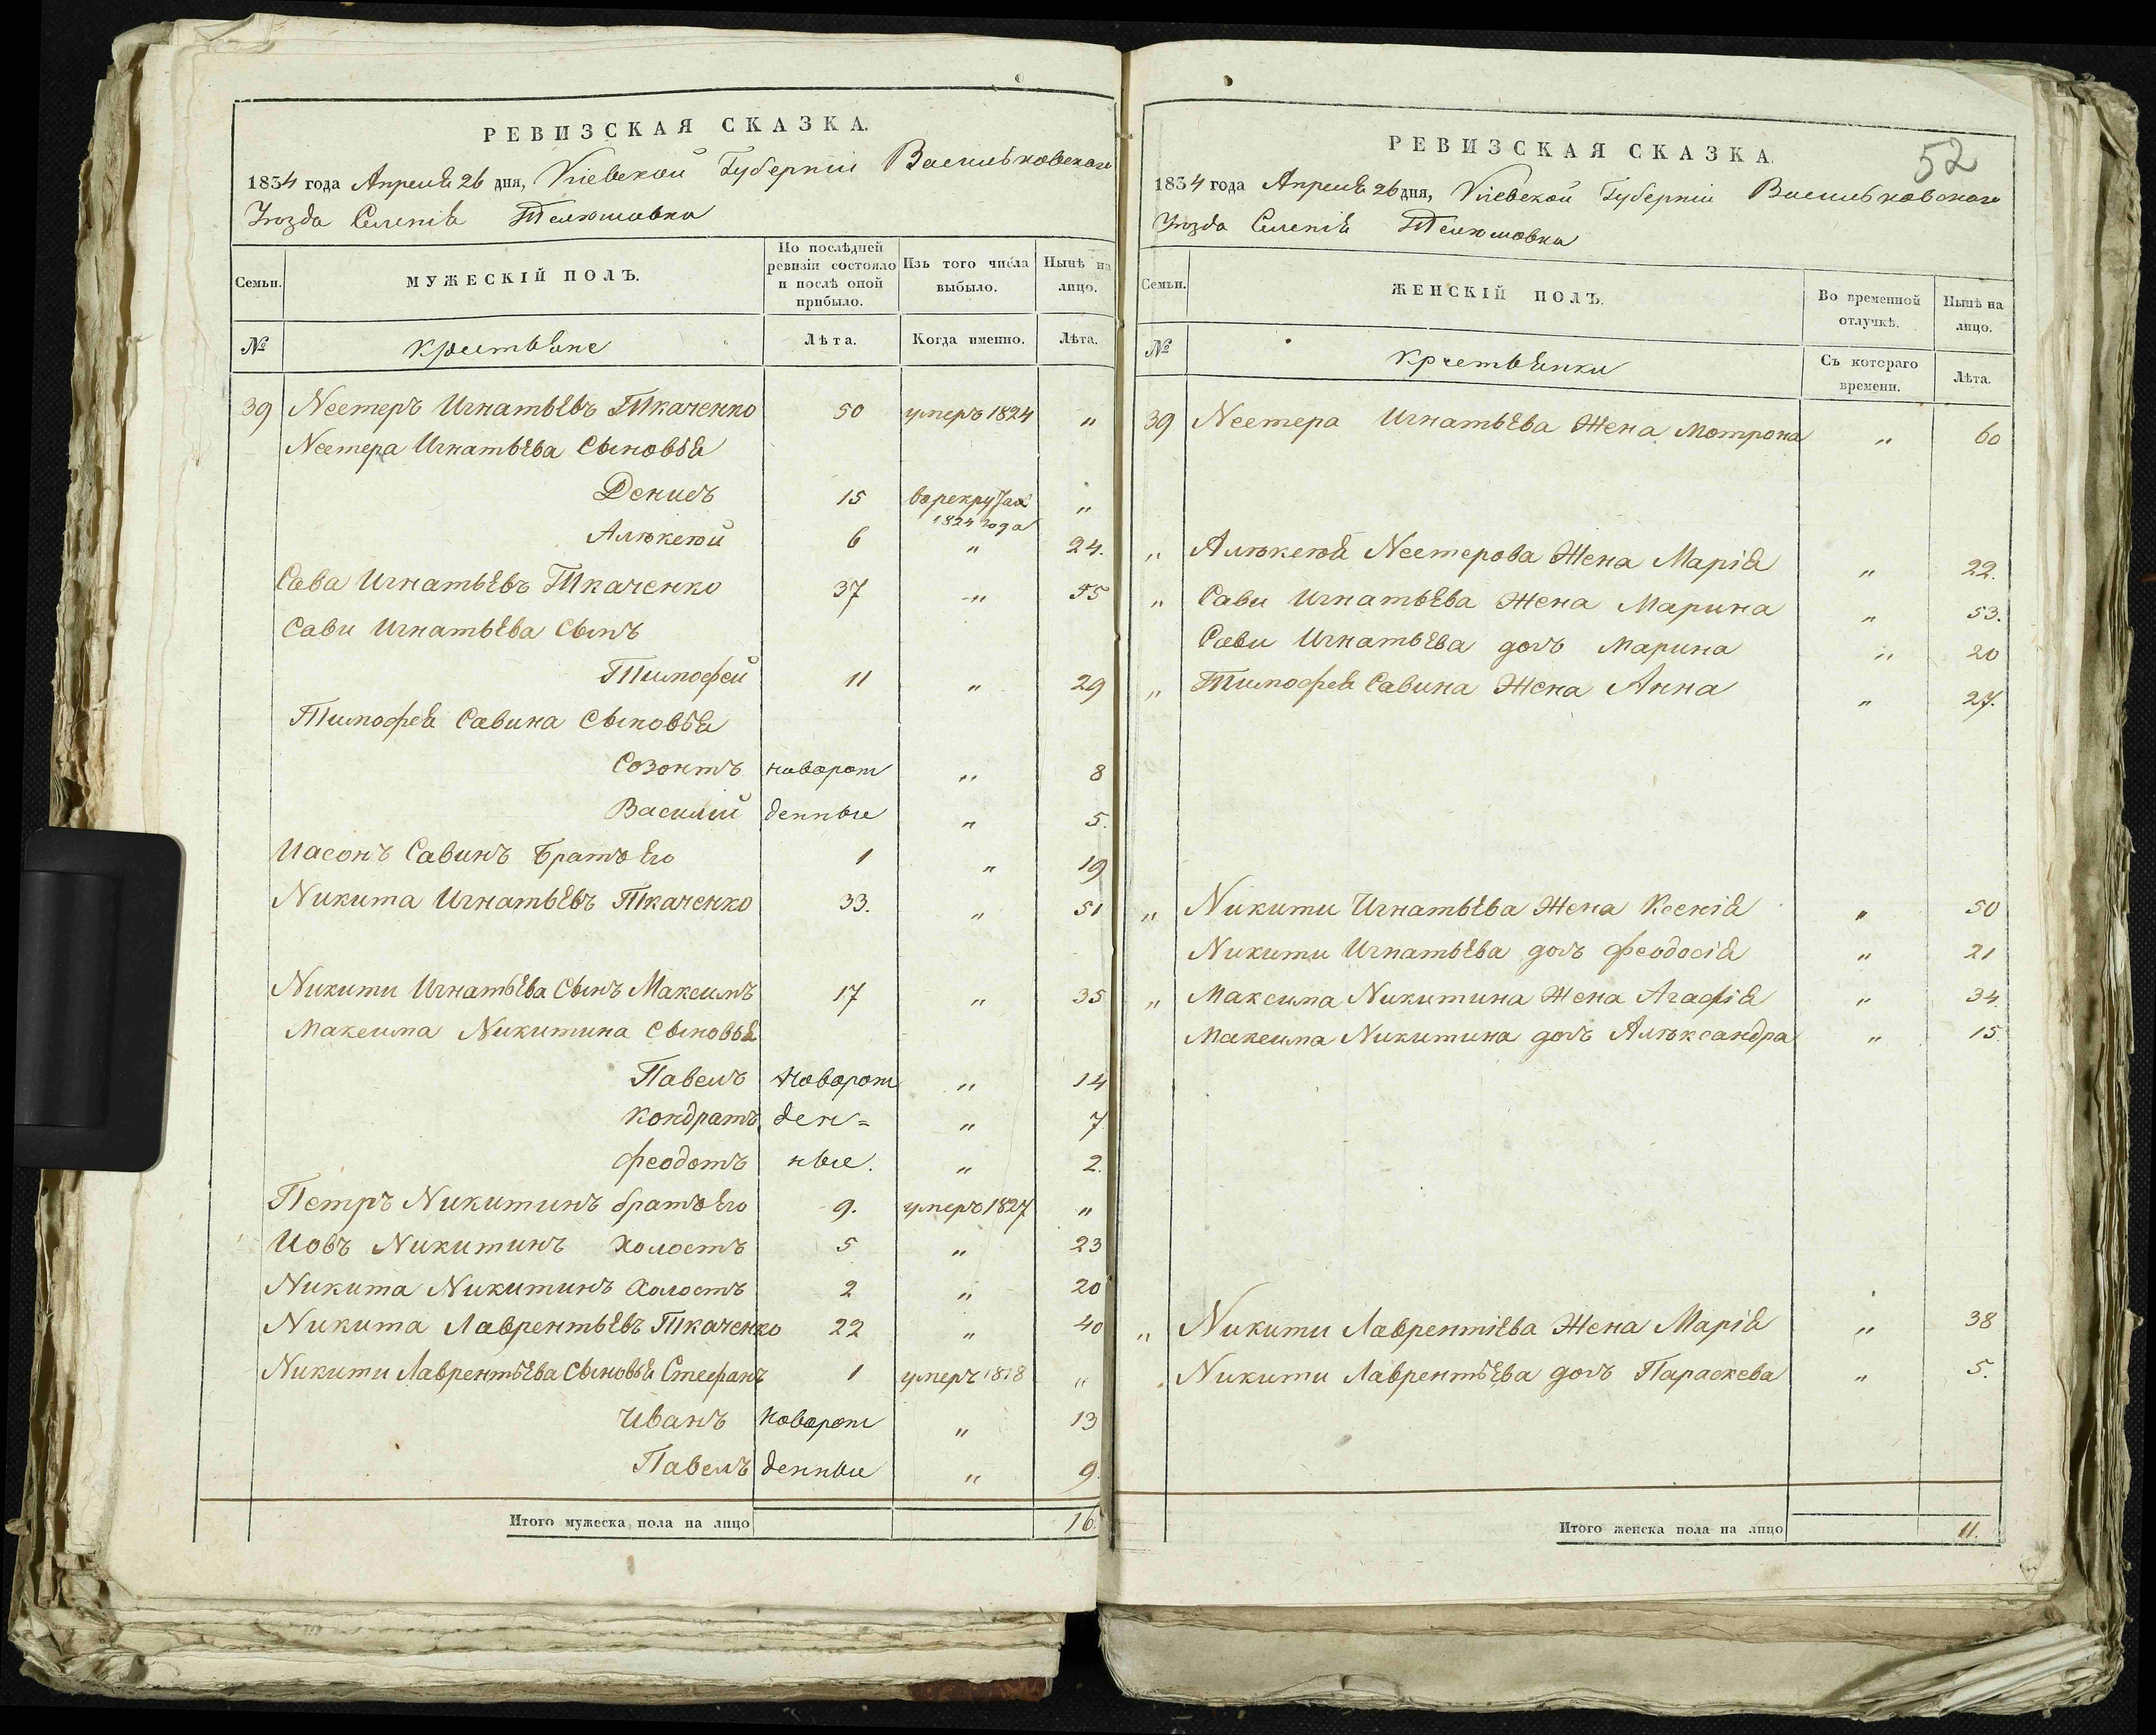 РЕВИЗСКАЯ СКАЗКА.
1834 года Апреля 26 дня, Кіевской Губерніи Васильковскаго
Уѣзда Селенія Телюшовки
Семьи.
МУЖЕСКІЙ ПОЛЪ.
По послѣдней ревизіи состояло и послѣ оной прибыло.
Изъ того числа выбыло.
Нынѣ на лицо.
№
крестьяне
Лѣта.
Когда именно.
Лѣта.
39 Нестеръ Игнатьевъ Ткаченко 50 умеръ 1824 "
Нестера Игнатьева Сыновья
Денисъ 15 в рекрутах 1824 года "
Алѣксей 6 " 24.
Сава Игнатьевъ Ткаченко 37 " 55
Сави Игнатьева Сынъ
Тимофей 11 " 29
Тимофея Савина Сыновья
Созонтъ новорож " 8
Василий денные " 5.
Иасонъ Савинъ Братъ Его 1 " 19
Никита Игнатьевъ Ткаченко 33. " 51
Никити Игнатьева Сынъ Максимъ 17 " 35
Максима Никитина Сыновья
Павелъ новорож " 14
Кондратъ ден= " 7
Феодотъ ные. " 2.
Петръ Никитинъ братъ Его 9. умеръ 1827 "
Иовъ Никитинъ Холостъ 5 " 23
Никита Никитинъ Холостъ 2 " 20
Никита Лаврентьевъ Ткаченко 22 " 40
Никити Лаврентьева Сыновья Стефанъ 1 умеръ 1818 "
Иванъ новорож " 13
Павелъ денные " 9.
Итого мужеска пола на лицо 16.
52
РЕВИЗСКАЯ СКАЗКА.
1834 года Апреля 26 дня, Кіевской Губерніи Васильковскаго
Уѣзда Селенія Телюшовки
Семьи.
ЖЕНСКІЙ ПОЛЪ.
Во временной отлучкѣ.
Нынѣ на лицо.
№
крестьянки
Съ котораго времени.
Лѣта.
39 Нестера Игнатьева Жена Мотрона " 60
" Алѣксея Нестерова Жена Марія " 22.
" Сави Игнатьева Жена Марина " 53.
Сави Игнатьева дочь Марина " 20
" Тимофея Савина Жена Анна " 27.
" Никити Игнатьева Жена Ксенія " 50
Никити Игнатьева дочь Феодосія " 21
" Максима Никитина Жена Агафія " 34.
Максима Никитина дочь Алѣксандра " 15.
" Никити Лаврентіева Жена Марія " 38
Никити Лаврентьева дочь Параскева " 5.
Итого женска пола на лицо 11.